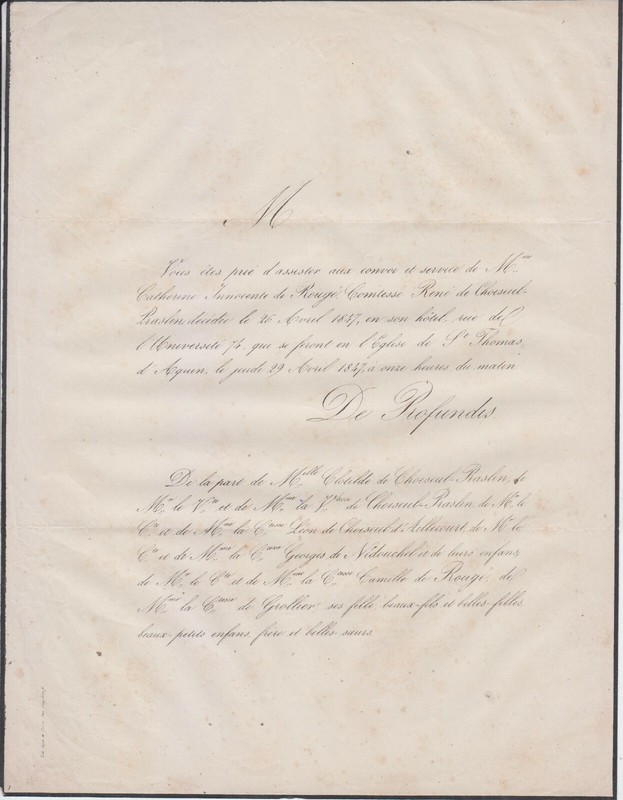 M
Vous êtes prié d'assister aux convoi et service de M.me
Catherine Innocente de Rougé, Comtesse René de Choiseul-
Praslin, décédée le 26 Avril 1847, en son hôtel, rue de
l'Université 74, qui se front en l'Eglise de St. Thomas
d'Aquin, le jeudi 29 Avril 1847, à onze heures du matin
De Profundis
De la part de M.elle Clotilde de Choiseul-Praslin, de
M.r le V.te et de M.me la V.tesse de Choiseul-Praslin, de M.r le
C.te et de M.me la C.tesse Léon de Choiseul d'Aillecourt, de M.r le
C.te et de M.me la C.tesse Georges de Nédonchel et de leurs enfans,
de M.r le C.te et de M.me la C.tesse Camille de Rougé, de
M.me la C.tesse de Grollier, ses fille beaux-fils et belles-filles,
beaux-petits enfans, frère et belles-sœurs.